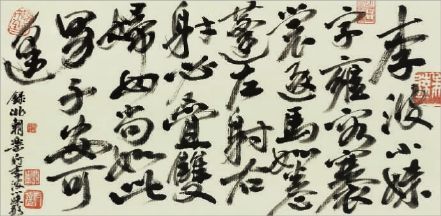 李波小妹
字雍容褰
裳逐馬如卷
蓬左射右
射必疊雙
婦女尚如此
男子安可
逢
錄北朝樂府李波小妹歌